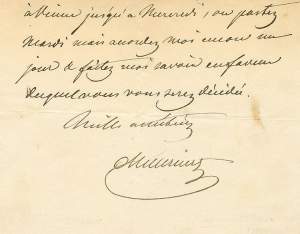 à Vienne jusqu'à Mercredi, ou partez
Mardi mais accordez moi encore un
jour & faites moi savoir en faveur
duquel vous vous serez décidé.
Mille amitiés